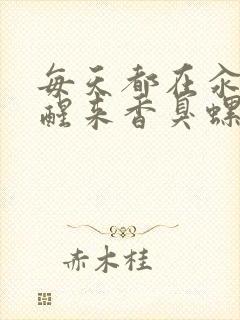 每天都在汆
醒来香臭螺
赤木桂